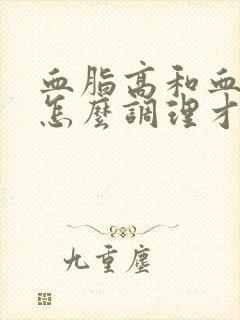 血脂高和血
怎麼調理才
九重塵